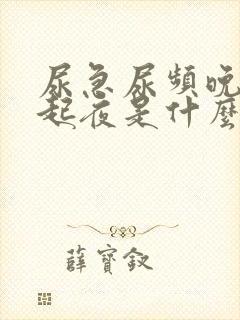 尿急尿頻晚
起夜是什麼
薛寶釵